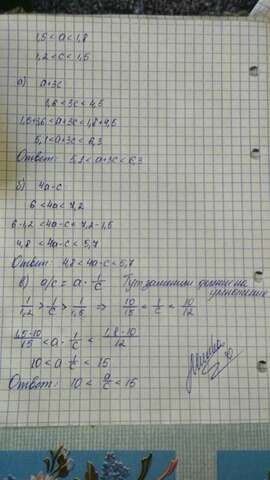 1,5 < a < 1,8
1,2 < c < 1,5
а) a+3c
3,6 < 3c < 4,5
1,5+3,6 < a+3c < 1,8+4,5
5,1 < a+3c < 6,3
Ответ: 5,1 < a+3c < 6,3
б) 4a-c
6 < 4a < 7,2
6-1,2 < 4a-c < 7,2-1,5
4,8 < 4a-c < 5,7
Ответ: 4,8 < 4a-c < 5,7
в) a/c = a · 1/c Тут заменили на
1/1,2 > 1/c > 1/1,5 10/15 < 1/c < 10/12
1,5·10/15 < a · 1/c < 1,8·10/12
10 < a · 1/c < 15
Ответ: 10 < a/c < 15